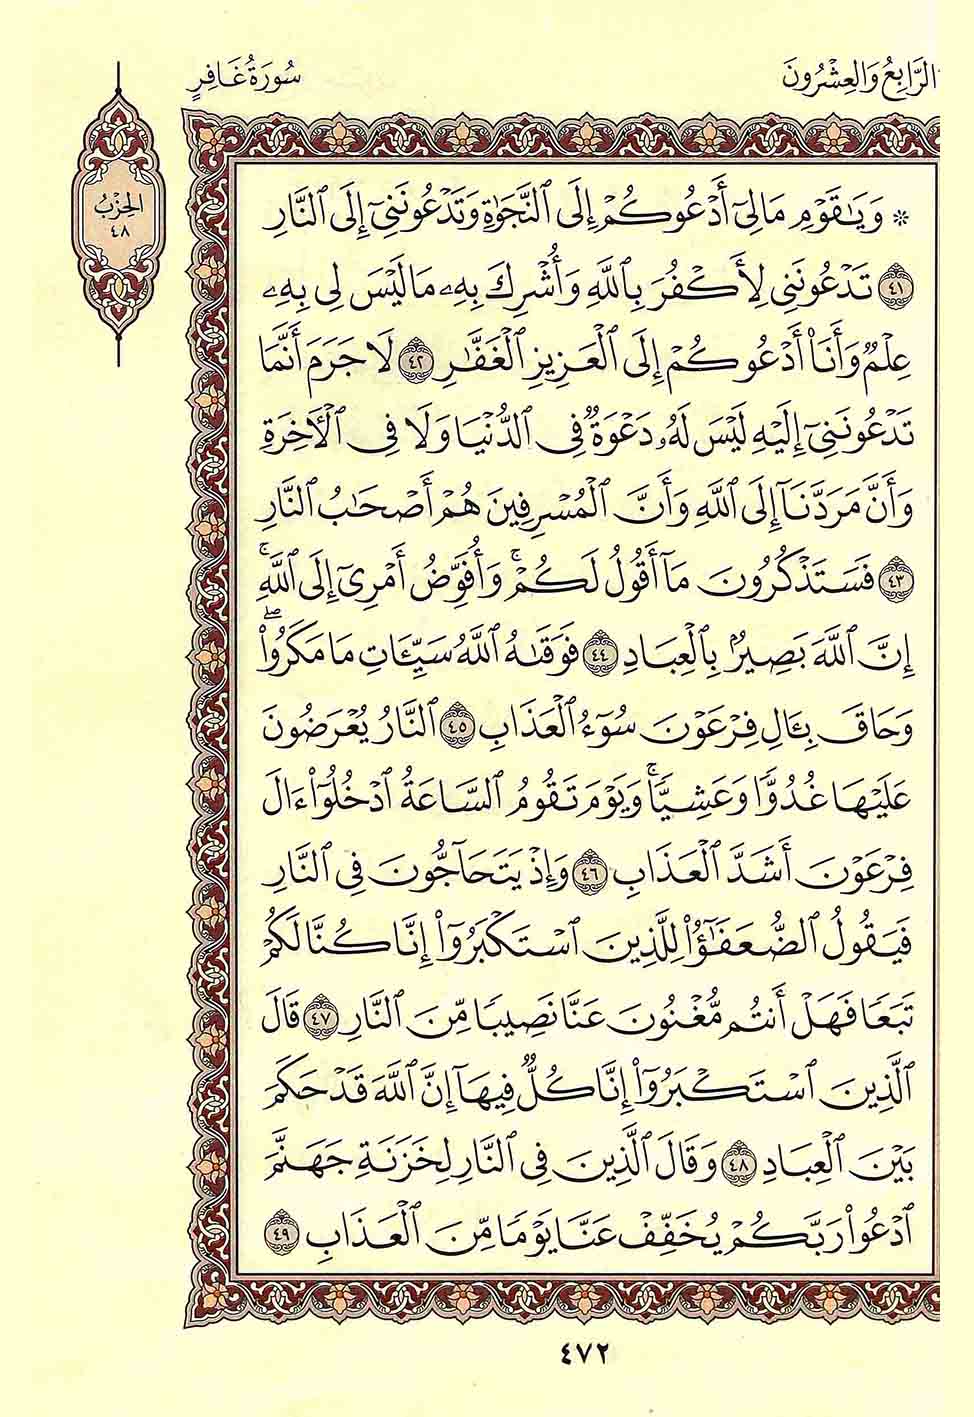 الرَّابِعُ وَالعِشْرُونَ
سُورَةُ غَافِرٍ
الحِزْبُ
٤٨
۞ وَيَٰقَوْمِ مَا لِىٓ أَدْعُوكُمْ إِلَى ٱلنَّجَوٰةِ وَتَدْعُونَنِىٓ إِلَى ٱلنَّارِ
٤١ تَدْعُونَنِى لِأَكْفُرَ بِٱللَّهِ وَأُشْرِكَ بِهِۦ مَا لَيْسَ لِى بِهِۦ
عِلْمٌ وَأَنَا۠ أَدْعُوكُمْ إِلَى ٱلْعَزِيزِ ٱلْغَفَّٰرِ ٤٢ لَا جَرَمَ أَنَّمَا
تَدْعُونَنِىٓ إِلَيْهِ لَيْسَ لَهُۥ دَعْوَةٌ فِى ٱلدُّنْيَا وَلَا فِى ٱلْأٓخِرَةِ
وَأَنَّ مَرَدَّنَآ إِلَى ٱللَّهِ وَأَنَّ ٱلْمُسْرِفِينَ هُمْ أَصْحَٰبُ ٱلنَّارِ
٤٣ فَسَتَذْكُرُونَ مَآ أَقُولُ لَكُمْ ۚ وَأُفَوِّضُ أَمْرِىٓ إِلَى ٱللَّهِ ۚ
إِنَّ ٱللَّهَ بَصِيرٌۢ بِٱلْعِبَادِ ٤٤ فَوَقَىٰهُ ٱللَّهُ سَيِّـَٔاتِ مَا مَكَرُوا۟ ۖ
وَحَاقَ بِـَٔالِ فِرْعَوْنَ سُوٓءُ ٱلْعَذَابِ ٤٥ ٱلنَّارُ يُعْرَضُونَ
عَلَيْهَا غُدُوًّا وَعَشِيًّا ۚ وَيَوْمَ تَقُومُ ٱلسَّاعَةُ أَدْخِلُوٓا۟ ءَالَ
فِرْعَوْنَ أَشَدَّ ٱلْعَذَابِ ٤٦ وَإِذْ يَتَحَآجُّونَ فِى ٱلنَّارِ
فَيَقُولُ ٱلضُّعَفَٰٓؤُا۟ لِلَّذِينَ ٱسْتَكْبَرُوٓا۟ إِنَّا كُنَّا لَكُمْ
تَبَعًا فَهَلْ أَنتُم مُّغْنُونَ عَنَّا نَصِيبًا مِّنَ ٱلنَّارِ ٤٧ قَالَ
ٱلَّذِينَ ٱسْتَكْبَرُوٓا۟ إِنَّا كُلٌّ فِيهَآ إِنَّ ٱللَّهَ قَدْ حَكَمَ
بَيْنَ ٱلْعِبَادِ ٤٨ وَقَالَ ٱلَّذِينَ فِى ٱلنَّارِ لِخَزَنَةِ جَهَنَّمَ
ٱدْعُوا۟ رَبَّكُمْ يُخَفِّفْ عَنَّا يَوْمًا مِّنَ ٱلْعَذَابِ ٤٩
٤٧٢